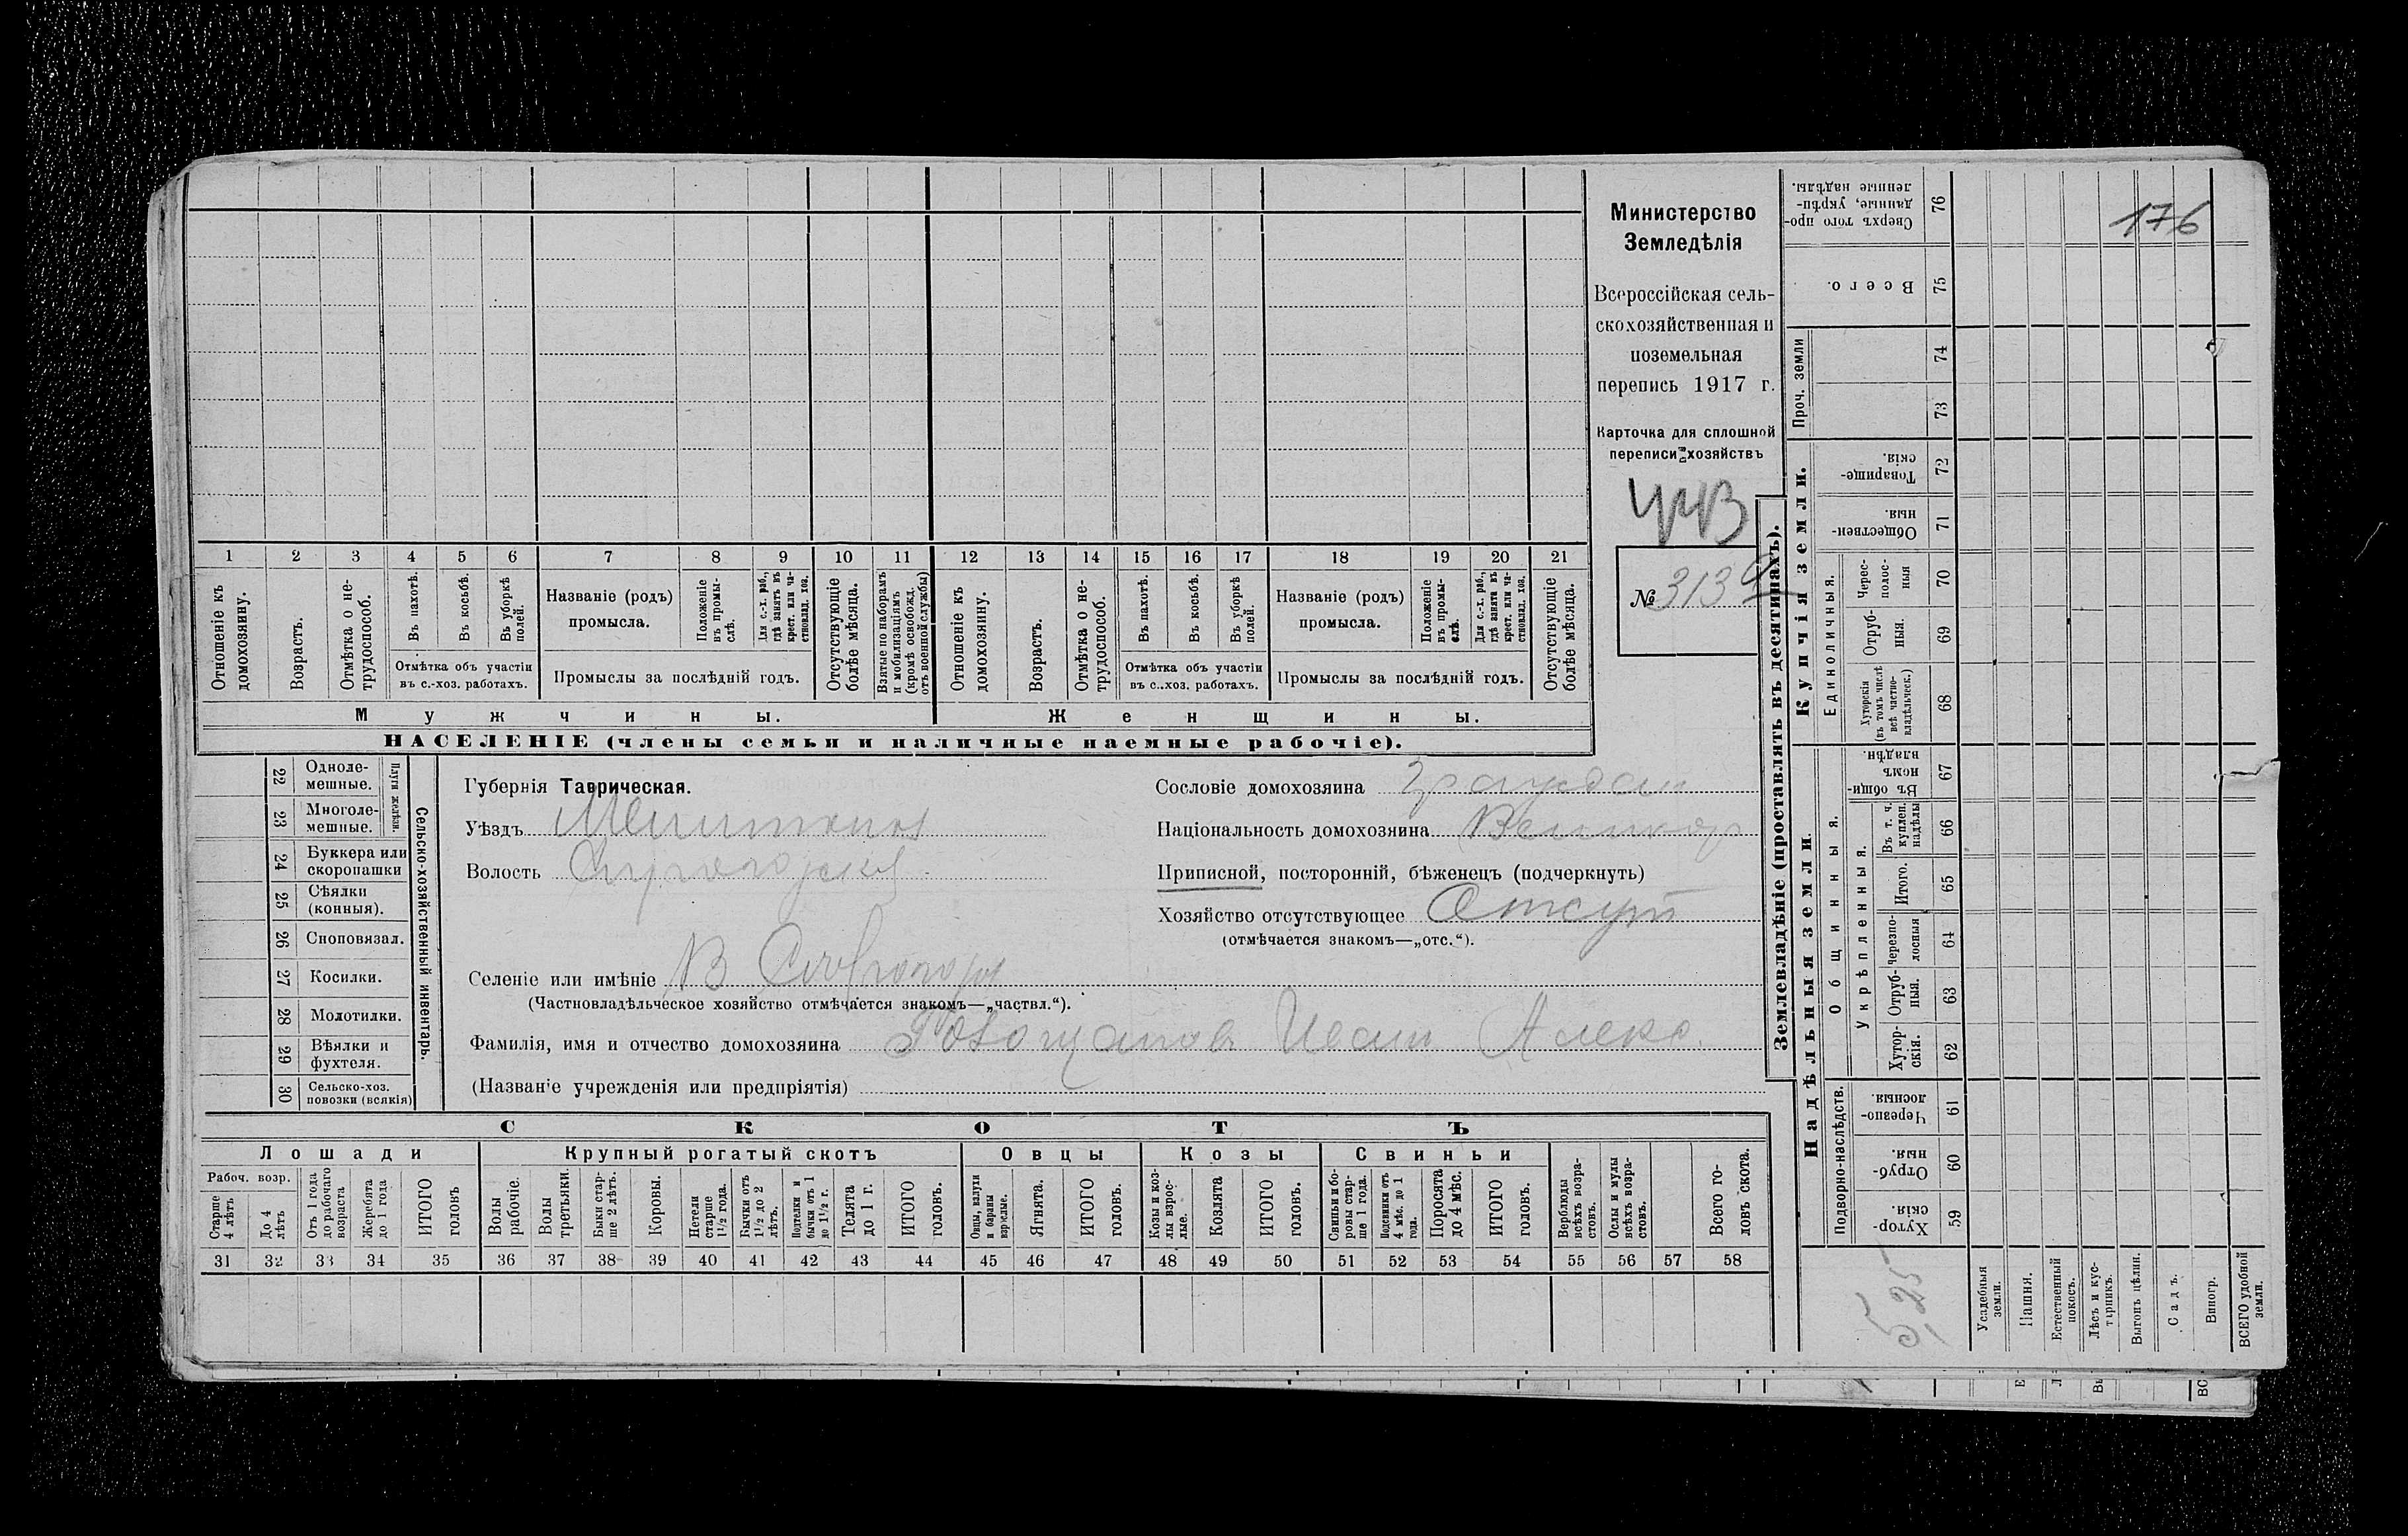 Министерство
Земледѣлія
Всероссійская сель-
скохозяйственная и
поземельная
перепись 1917 г.
Карточка для сплошной
переписи хозяйствъ
№ 313
176
1 2 3 4 5 6 7 8 9 10 11 12 13 14 15 16 17 18 19 20 21
Отношеніе къ домохозяину.
Возрастъ.
Отмѣтка о не-трудоспособ.
Въ пахотѣ.
Въ косьбѣ.
Въ уборкѣ полей.
Отмѣтка объ участіи
въ с.-хоз. работахъ.
Названіе (родъ)
промысла.
Положеніе въ промы-слѣ.
Для с.-х. раб., гдѣ занятъ въ крест. или ча-стновлад. хоз.
Промыслы за послѣдній годъ.
Отсутствующіе болѣе мѣсяца.
Взятые по наборамъ и мобилизаціямъ (кромѣ освобожд. отъ военной службы)
Отношеніе къ домохозяину.
Возрастъ.
Отмѣтка о не-трудоспособ.
Въ пахотѣ.
Въ косьбѣ.
Въ уборкѣ полей.
Отмѣтка объ участіи
въ с..хоз. работахъ.
Названіе (родъ)
промысла.
Положеніе въ промы-слѣ.
Для с.-х. раб., гдѣ занята въ крест. или ча-стновлад. хоз.
Промыслы за послѣдній годъ.
Отсутствующіе болѣе мѣсяца.
Мужчины.
Женщины.
НАСЕЛЕНІЕ (члены семьи и наличные наемные рабочіе).
Сельско-хозяйственный инвентарь.
Плуги желѣзн.
22 Одноле-мешные.
23 Многоле-мешные.
24 Буккера или скоропашки
25 Сѣялки (конныя).
26 Сноповязал.
27 Косилки.
28 Молотилки.
29 Вѣялки и фухтеля.
30 Сельско-хоз. повозки (всякія)
Губернія Таврическая.
Уѣздъ Мелитопол
Волость
Селеніе или имѣніе
(Частновладѣльческое хозяйство отмѣчается знакомъ—„частвл.“).
Фамилія, имя и отчество домохозяина
(Названіе учрежденія или предпріятія)
Сословіе домохозяина граждан
Національность домохозяина Великор
Приписной, посторонній, бѣженецъ (подчеркнуть)
Хозяйство отсутствующее Отсут
(отмѣчается знакомъ—„отс.“).
СКОТЪ
Лошади
Рабоч. возр.
Старше 4 лѣтъ
До 4 лѣтъ
Отъ 1 года до рабочаго возраста
Жеребята до 1 года
ИТОГО головъ
Крупный рогатый скотъ
Волы рабочіе.
Волы третьяки.
Быки стар-ше 2 лѣтъ.
Коровы.
Нетели старше 1½ года.
Бычки отъ 1½ до 2 лѣтъ.
Подтелки и бычки отъ 1 до 1½ г.
Телята до 1 г.
ИТОГО головъ.
Овцы
Овцы, валухи и бараны взрослые.
Ягнята.
ИТОГО головъ.
Козы
Козы и коз-лы взрос-лые.
Козлята
ИТОГО головъ.
Свиньи
Свиньи и бо-ровы стар-ше 1 года.
Подсвинки отъ 4 мѣс. до 1 года.
Поросята до 4 мѣс.
ИТОГО головъ.
Верблюды всѣхъ возра-стовъ.
Ослы и мулы всѣхъ возра-стовъ.
Всего го-ловъ скота.
31 32 33 34 35 36 37 38 39 40 41 42 43 44 45 46 47 48 49 50 51 52 53 54 55 56 57 58
Землевладѣніе (проставлять въ десятинахъ).
Купчія земли.
Надѣльныя земли.
Сверхъ того про-данные, укрѣп-ленные надѣлы. 76
Всего. 75
Проч. земли
74
73
Товарище-скія. 72
Обществен-ныя. 71
Единоличныя.
Черес-полос-ныя 70
Отруб-ныя. 69
Хуторскія (въ томъ числѣ всѣ частно-владѣльческ.) 68
Общинныя.
Въ общин-номъ владѣн. 67
Укрѣпленныя.
Въ т. ч. куплен. надѣлы 66
Итого. 65
Черезпо-лосныя 64
Отруб-ныя. 63
Хутор-скія. 62
Подворно-наслѣдств.
Черезпо-лосныя. 61
Отруб-ныя. 60
Хутор-скія. 59
5,25
Усадебныя земли.
Пашня.
Естественный покосъ.
Лѣсъ и кус-тарникъ.
Выгонъ цѣлин.
Садъ.
Виногр.
ВСЕГО удобной земли.